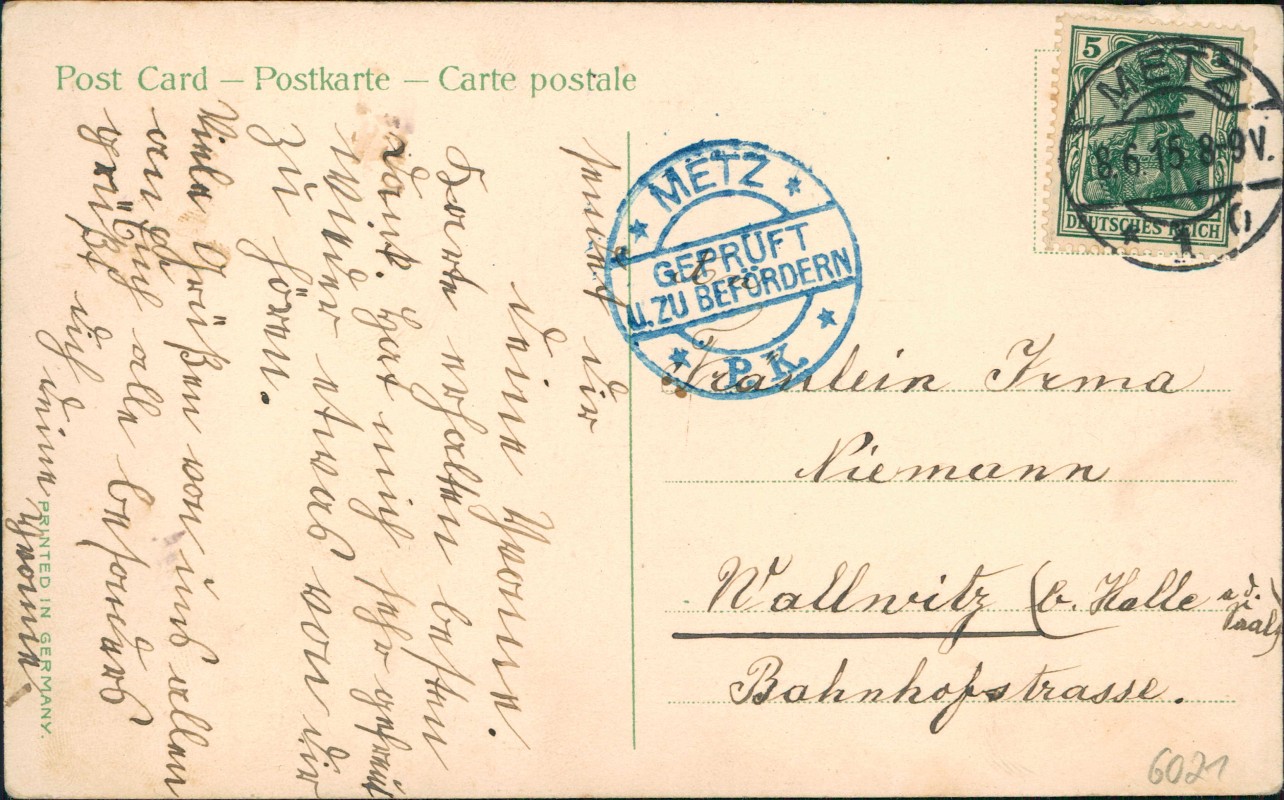 Post Card – Postkarte – Carte postale
5
DEUTSCHES REICH
METZ
8.6.15.8-9V.
* 1
METZ
GEPRÜFT
U. ZU BEFÖRDERN
P.K.
Fräulein Irma
Niemann
Wallwitz (b. Halle a.d. Saal)
Bahnhofstrasse.
sendet dir
deine Yvonne.
Karte erhalten besten
Dank. Hat mich sehr gefreut
wieder etwas von dir
zu hören.
Viele Grüßen von uns allen
an Euch alle besonders
grüßt dich deine
Yvonne.
PRINTED IN GERMANY.
6021